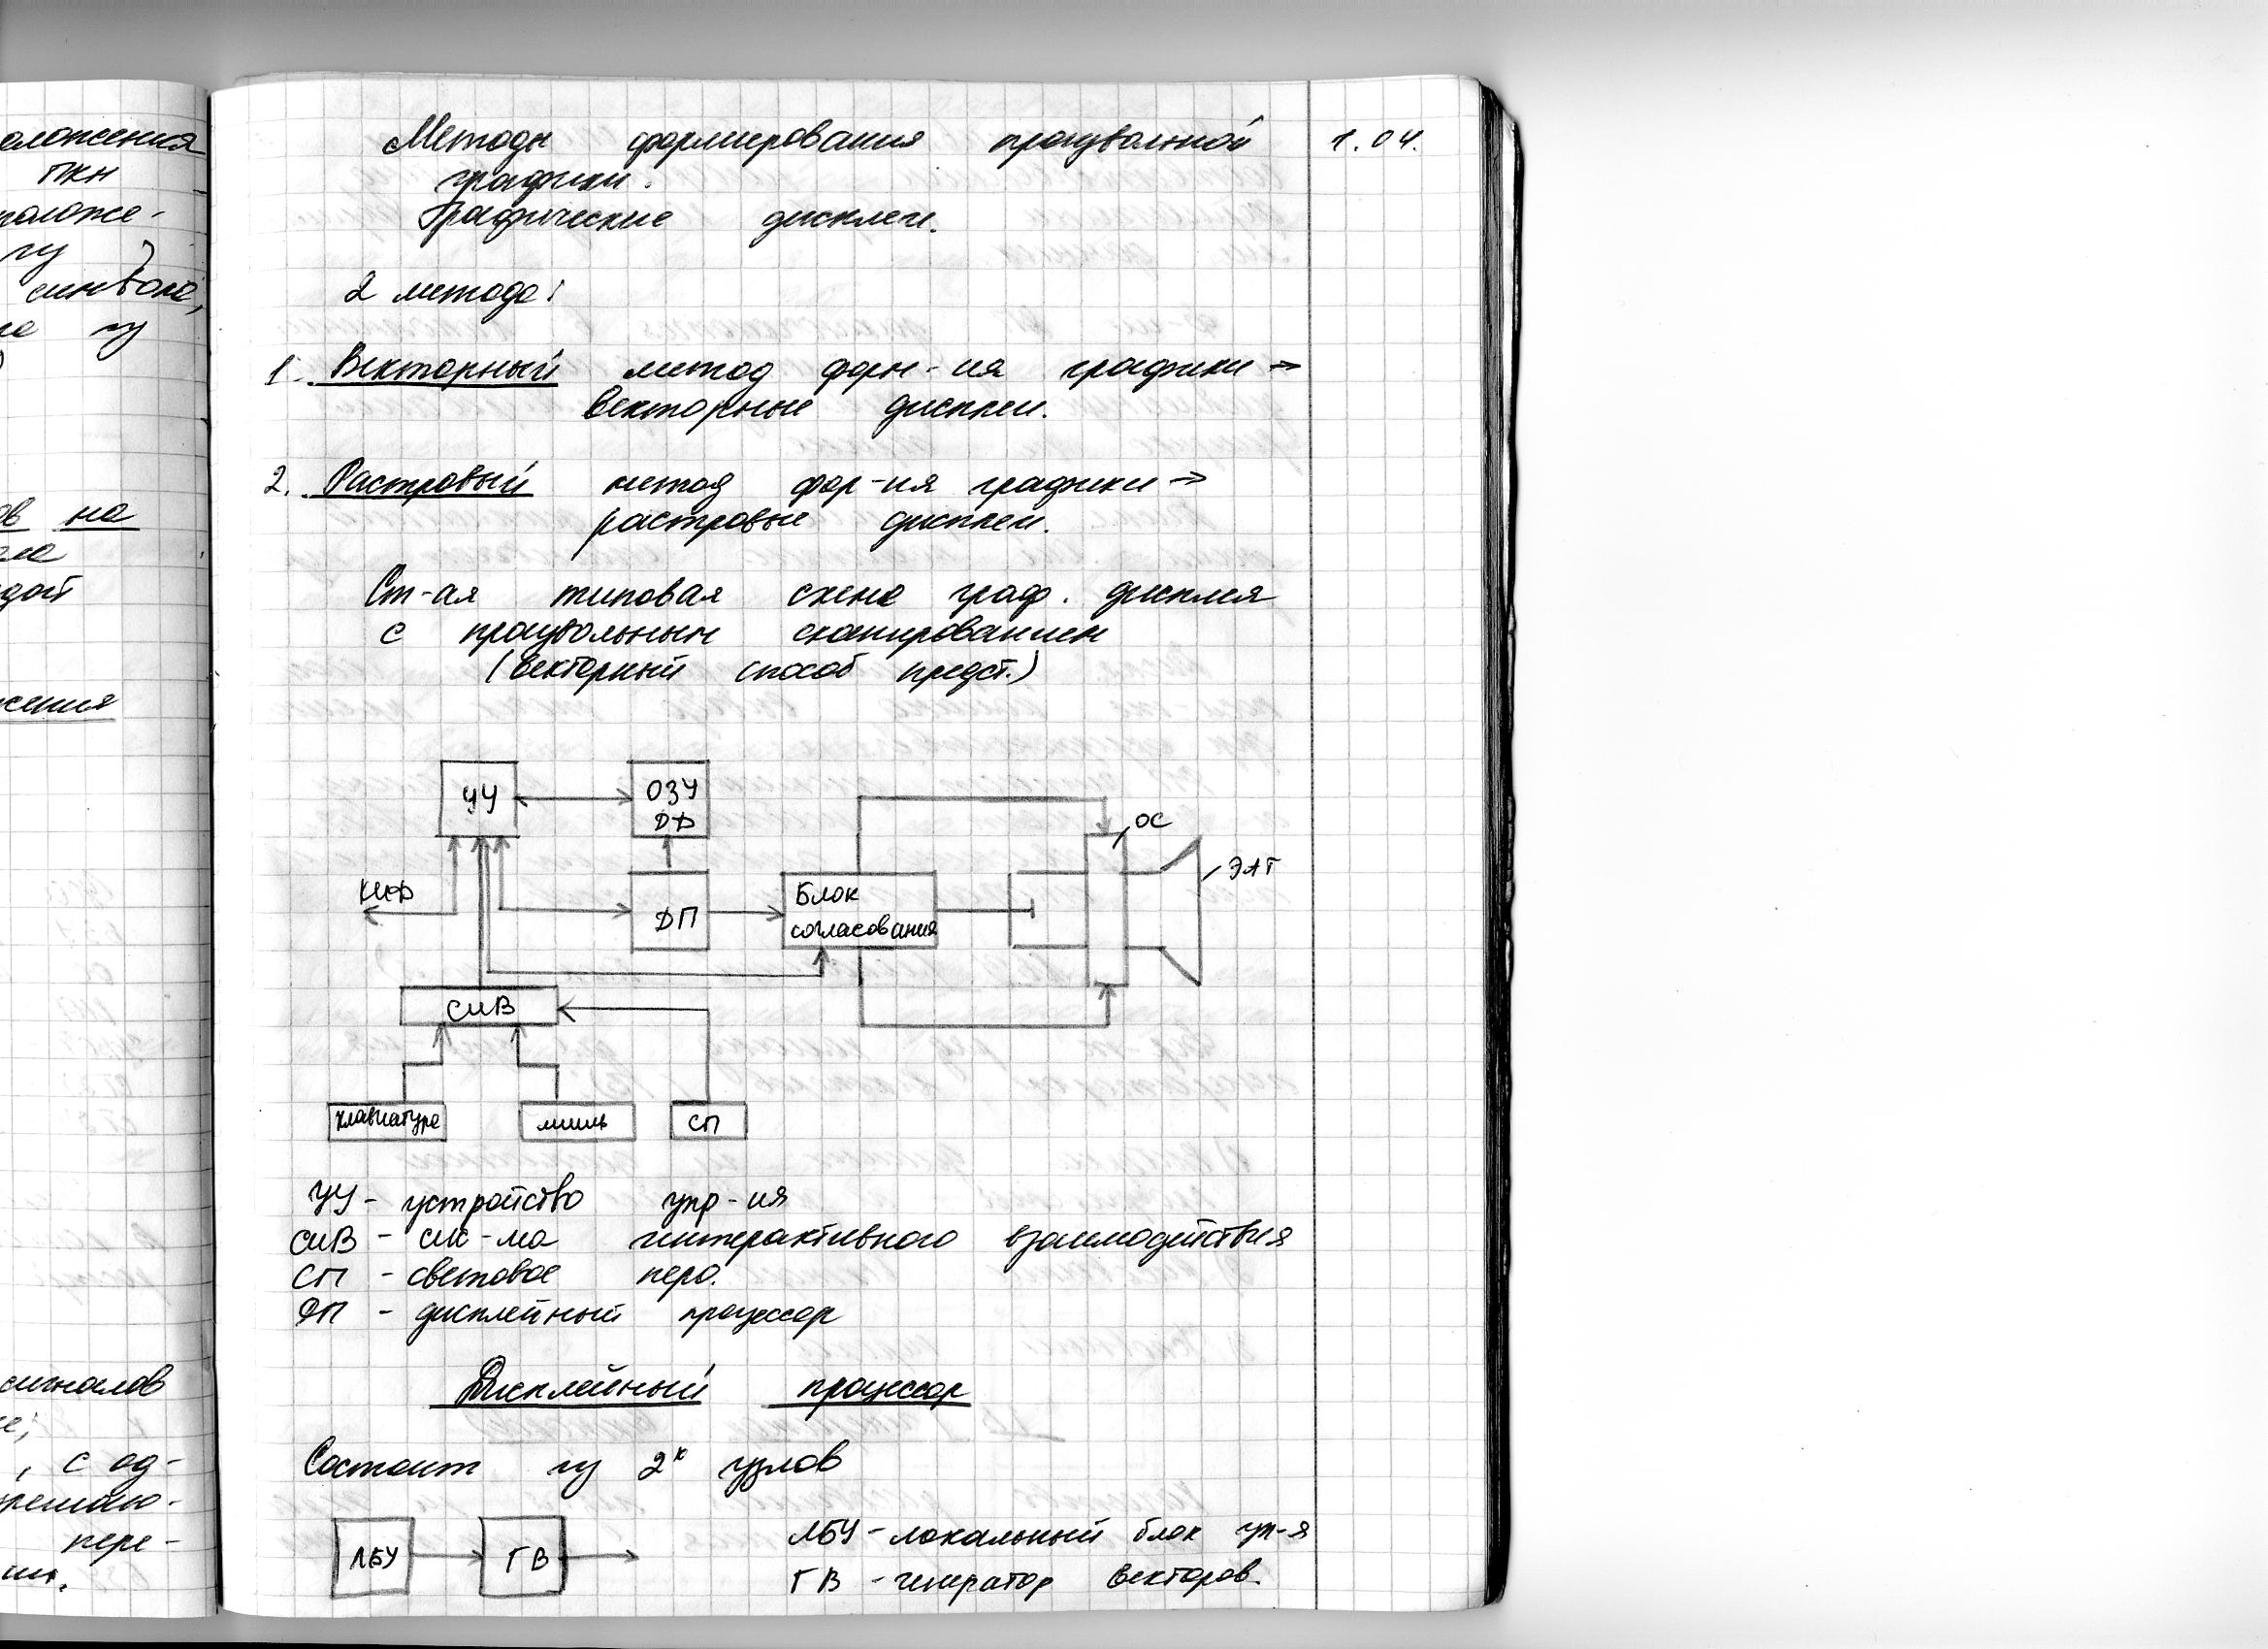 оложения
ПКН
положе-
из
символа,
на из
ов на
дот
жения
сигналов
е;
, с од-
времен-
пере-
Методы формирования произвольной 1.04.
графики.
Графические дисплеи.
2 метода:
1. Векторный метод форм-ия графики →
векторные дисплеи.
2. Растровый метод фор-ия графики →
растровые дисплеи.
Ст-ая типовая схема граф. дисплея
с произвольным сканированием
(векторный способ предст.)
УУ
ОЗУ
DD
ОС
ЭЛТ
КИФ
ДП
Блок
согласования
СИВ
клавиатура
мышь
СП
УУ - устройство упр-ия
СИВ - сис-ма интерактивного взаимодействия
СП - световое перо.
ДП - дисплейный процессор
Дисплейный процессор
Состоит из 2х узлов
ЛБУ
ГВ
ЛБУ - локальный блок уп-я
ГВ - генератор векторов.